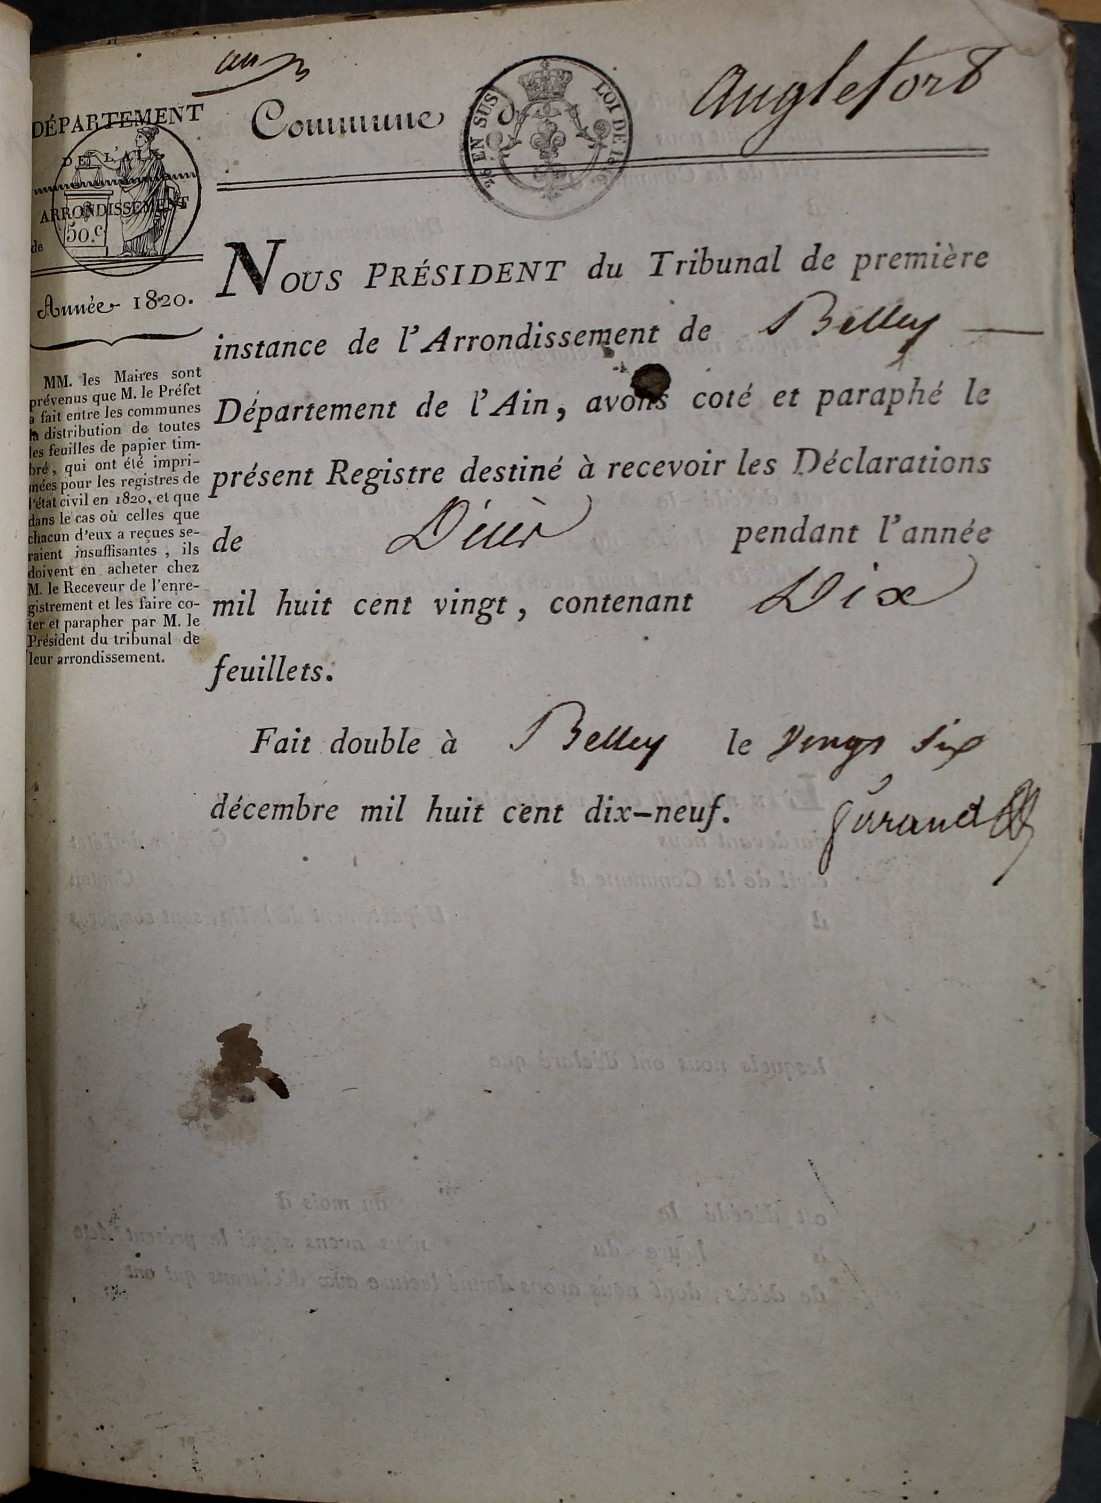 DÉPARTEMENT
DE L'AIN
ARRONDISSEMENT
50.c
de
Année 1820.
MM. les Maires sont
prévenus que M. le Préfet
a fait entre les communes
la distribution de toutes
les feuilles de papier tim-
bré, qui ont été impri-
mées pour les registres de
l'état civil en 1820, et que
dans le cas où celles que
chacun d'eux a reçues se-
raient insuffisantes, ils
doivent en acheter chez
M. le Receveur de l'enre-
gistrement et les faire co-
ter et parapher par M. le
Président du tribunal de
leur arrondissement.
Commune d Anglefort
EN SUS LOI DE 1816
NOUS PRÉSIDENT du Tribunal de première
instance de l'Arrondissement de Belley
Département de l'Ain, avons coté et paraphé le
présent Registre destiné à recevoir les Déclarations
de Décès pendant l'année
mil huit cent vingt, contenant Dix
feuillets.
Fait double à Belley le vingt six
décembre mil huit cent dix-neuf.